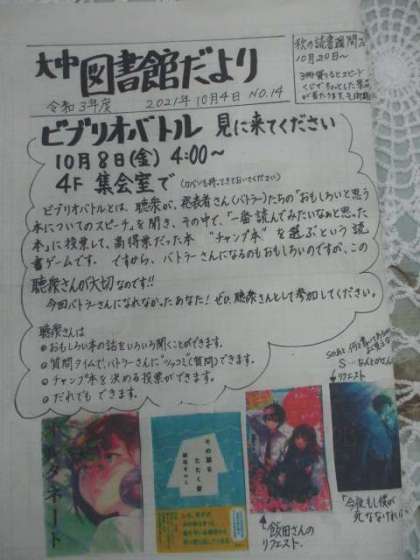 大中図書館だより
令和3年度 2021年10月4日 NO.14
秋の読書週間
10月20日～
ビブリオバトル 見に来てください
10月8日(金) 4:00～
4F 集会室で (カバンも持ってきておいてください)
ビブリオバトルとは、聴衆が、発表者さん(バトラー)たちの"おもしろいと思う
本についてのスピーチ"を聞き、その中で、"一番読んでみたいなぁと思った
本"に投票して、高得票だった本 "チャンプ本"を選ぶという読
書ゲームです。ですから、バトラーさんになるのもおもしろいのですが、この
聴衆さんが大切なのです!!
今回バトラーさんになれなかったあなた! ぜひ、聴衆さんとして参加してください。
聴衆さんは
おもしろい本の話をいろいろ聞くことができます。
質問タイムで、バトラーさんに"ツッコミ(質問)できます。
チャンプ本を決める投票ができます。
だれでもできます。
リクエスト
その扉をたたく音
飯田さんの
リクエスト.
「今夜、もし僕が
死ななければ」